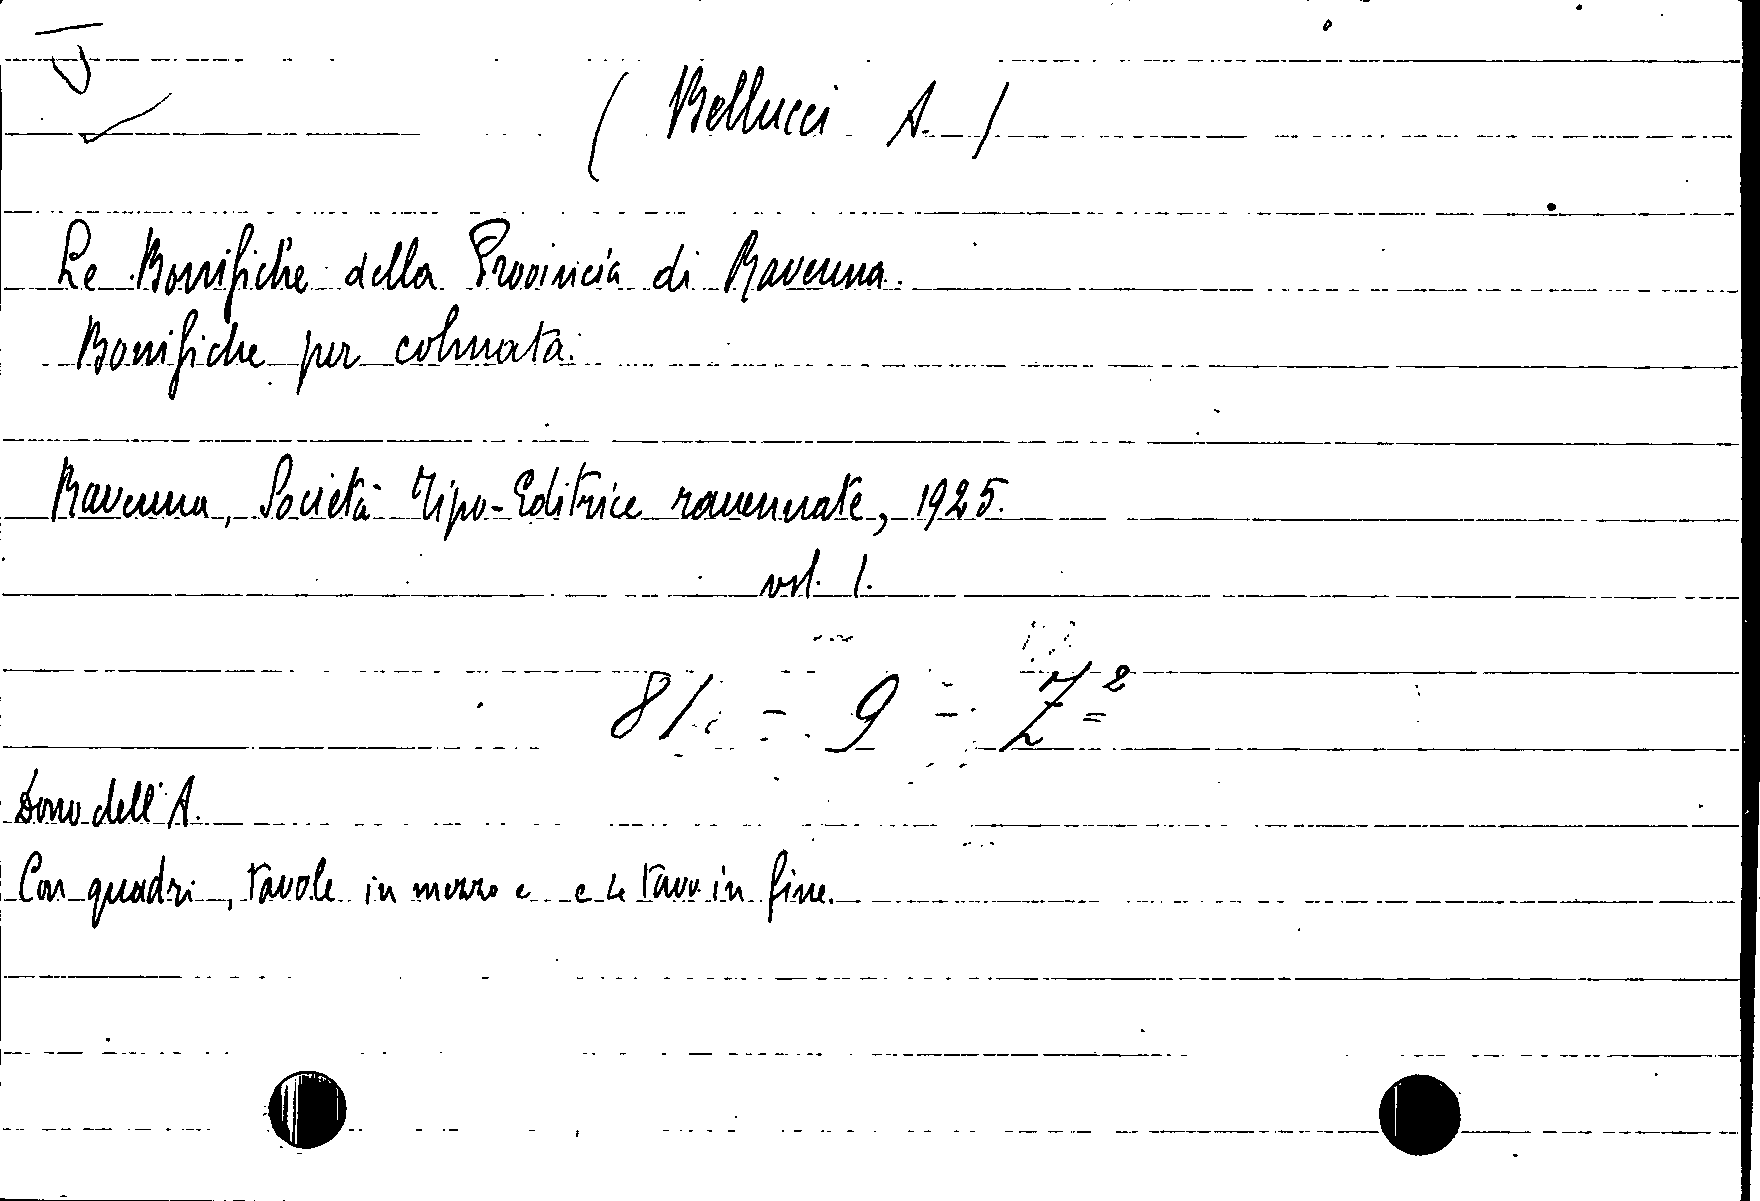 ( Bellucci A. )
Le Bonifiche della Provincia di Ravenna.
Bonifiche per colmata.
Ravenna, Società Tipo-Editrice ravennate, 1925.
vol. 1.
81 - 9 - Z²
Dono dell'A.
Con quadri, tavole in mezzo e in fine.